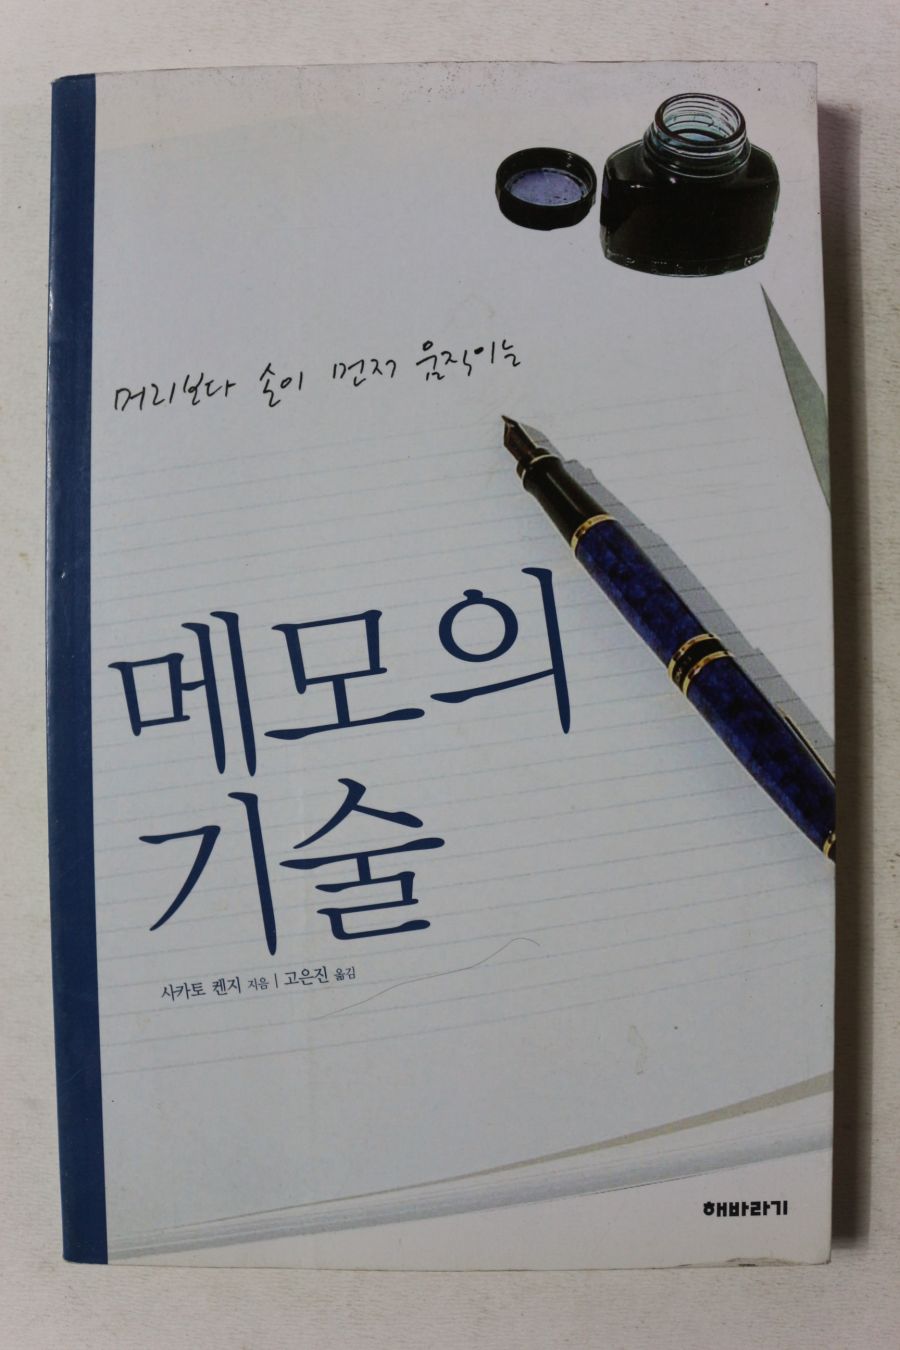 머리보다 손이 먼저 움직이는
메모의
기술
사카토 켄지 지음 | 고은진 옮김
해바라기